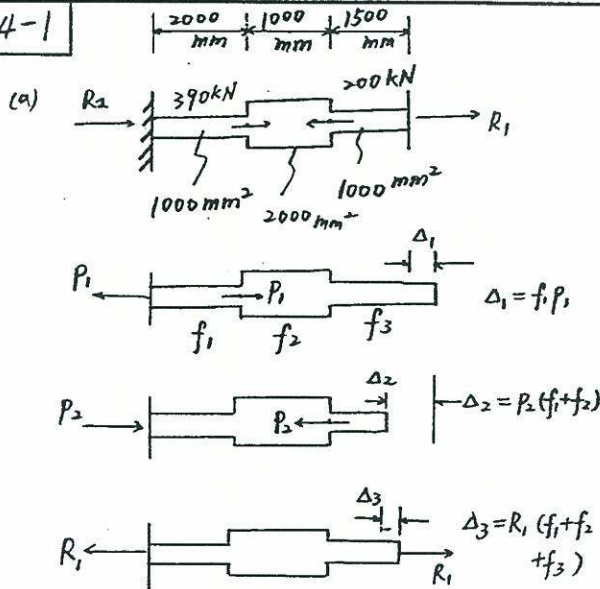 4-1
2000 mm
1000 mm
1500 mm
(a)
R2
390kN
200kN
R1
1000mm²
2000mm²
1000mm²
Δ1
P1
P1
Δ1=f1P1
f1 f2 f3
Δ2
P2
P2
Δ2=P2(f1+f2)
Δ3
R1
R1
Δ3=R1(f1+f2
+f3)